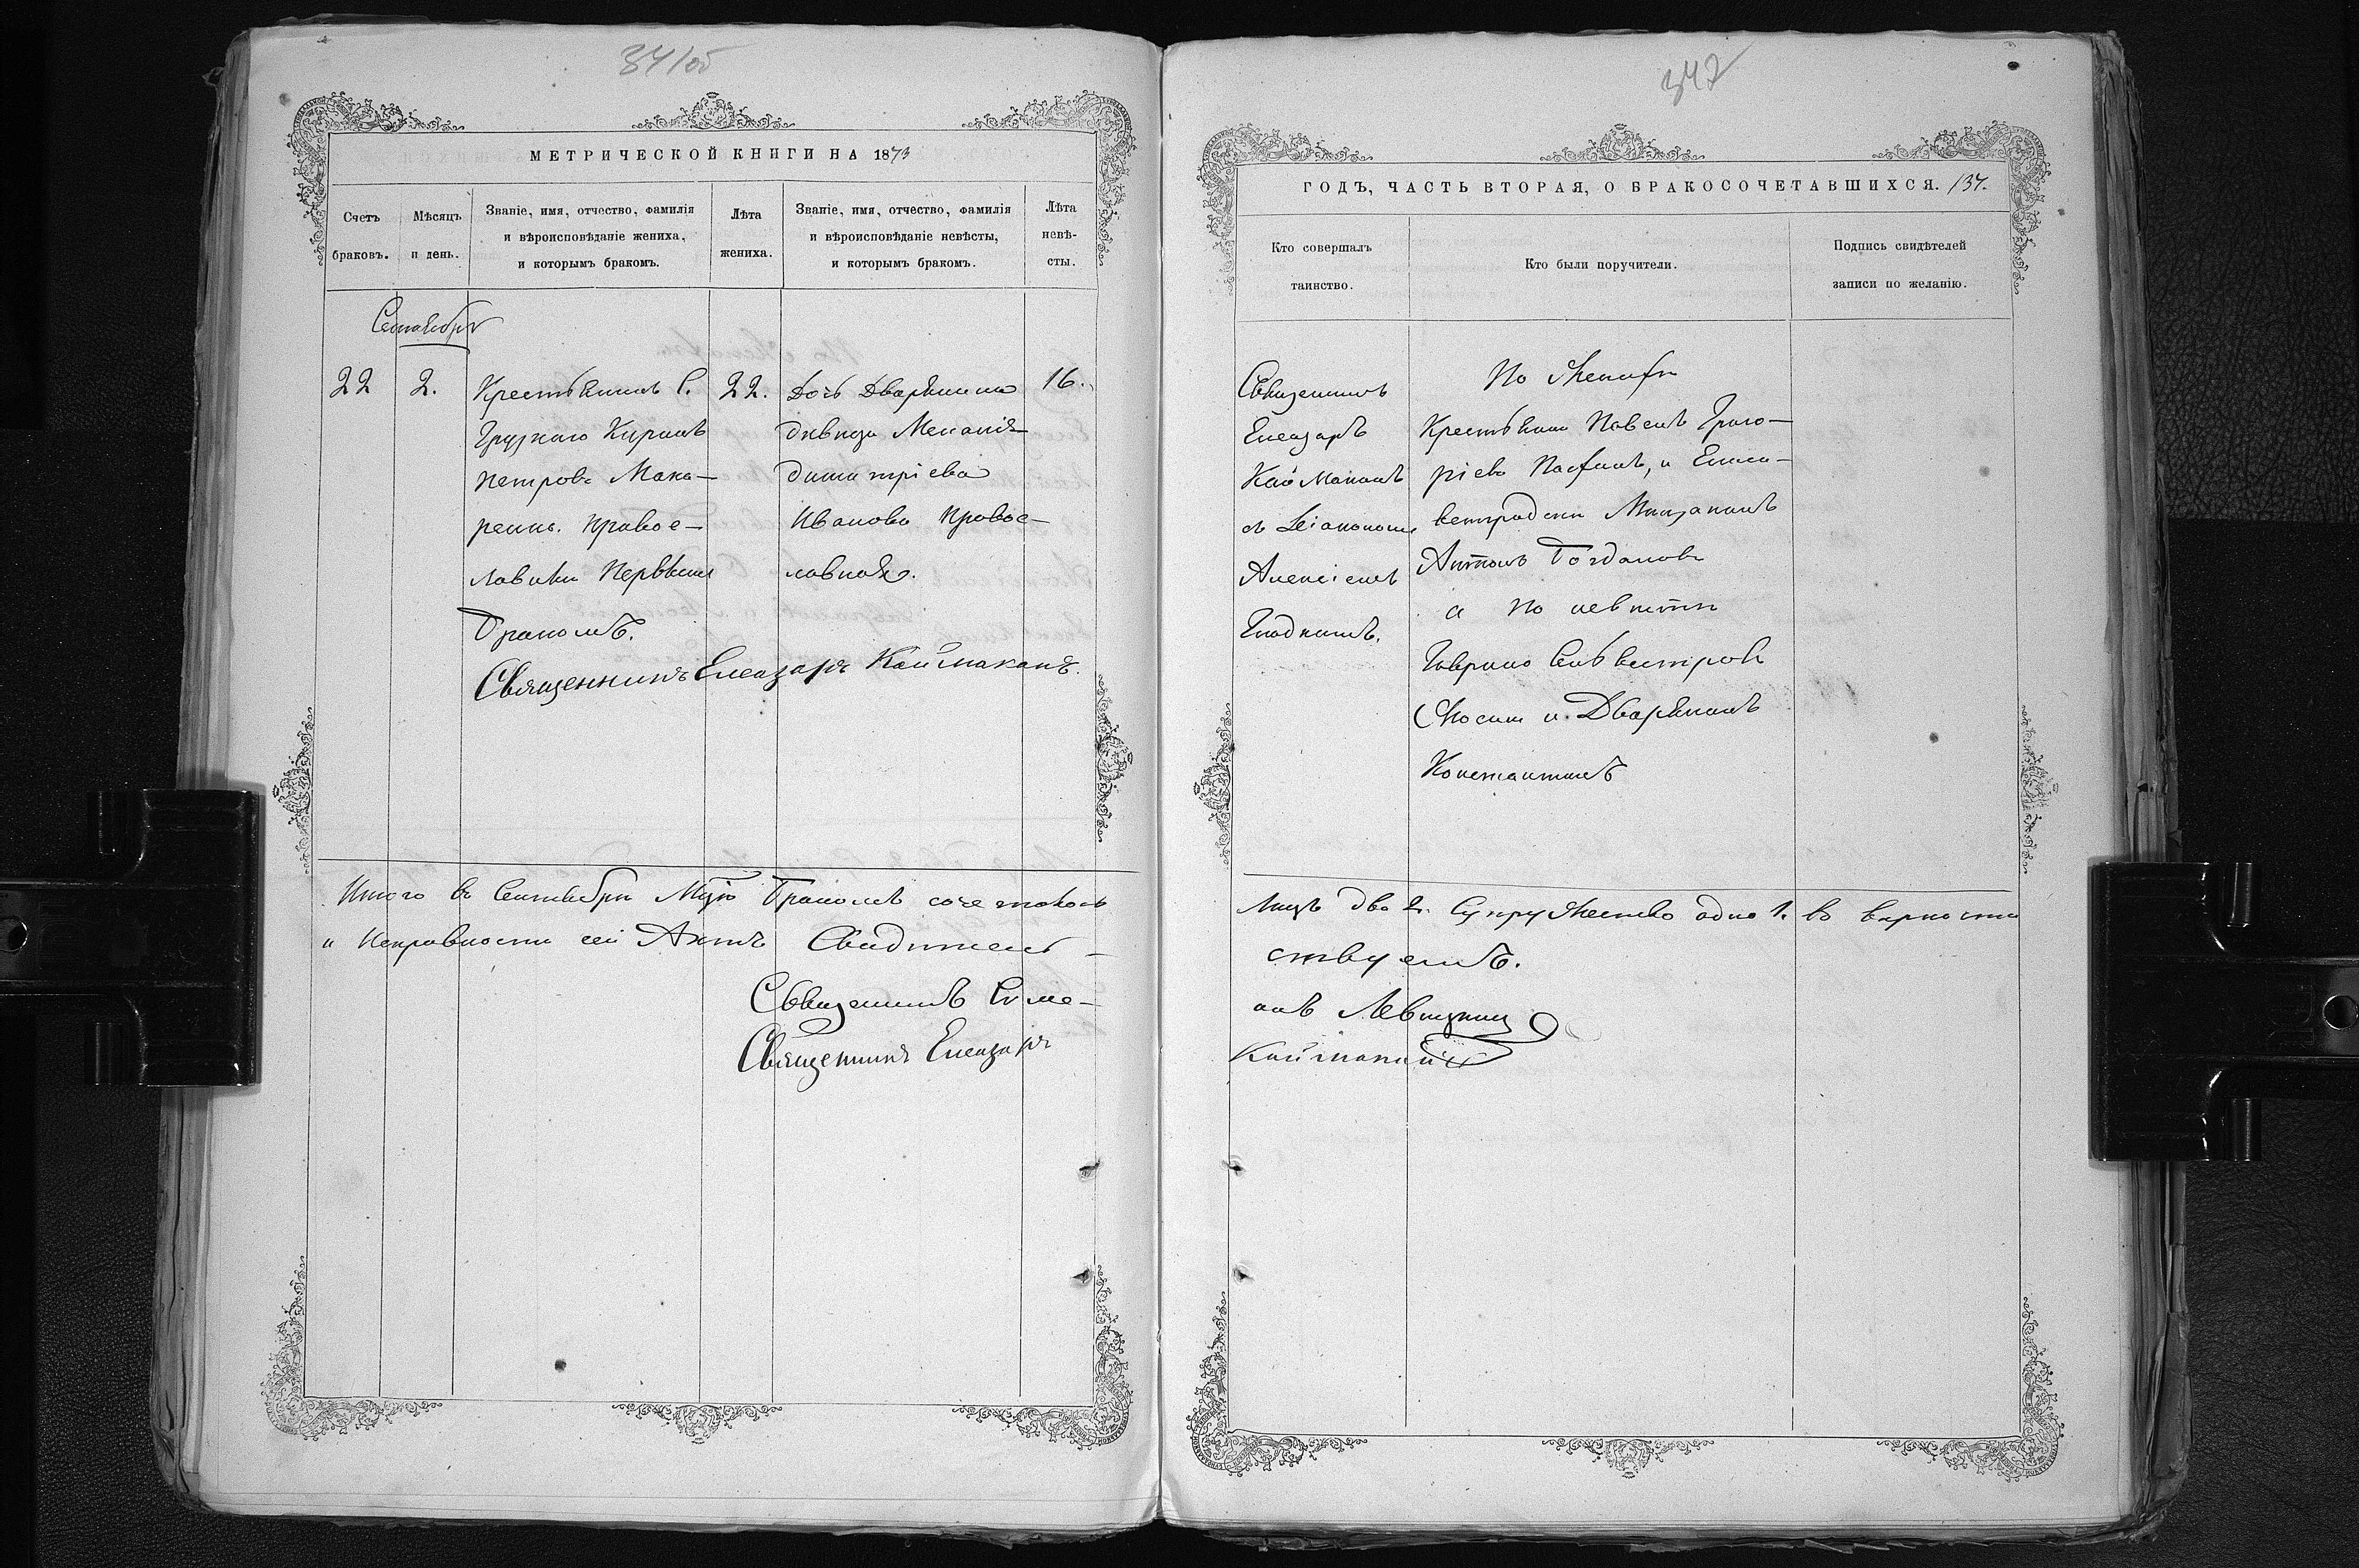 341об
МЕТРИЧЕСКОЙ КНИГИ НА 1873
Счетъ браковъ.
Мѣсяцъ и день.
Званіе, имя, отчество, фамилія и вѣроисповѣданіе жениха, и которымъ бракомъ.
Лѣта жениха.
Званіе, имя, отчество, фамилія и вѣроисповѣданіе невѣсты, и которымъ бракомъ.
Лѣта невѣ-
сты.
Сентябрь
22
2.
Крестьянинъ С.
Грузкаго Кирилъ
Петровъ Мака-
ренко. Право-
славный Первымъ
бракомъ.
22.
Дочь Дворянина
дѣвица Меланія
Димитріева
Иванова Правос-
лавная.
16.
Священникъ Елеазаръ Каймаканъ.
Итого въ Сентябрѣ М-цѣ бракомъ сочеталось
и Исправности сей Актъ Свидѣтель-
Священникъ Симе-
Священникъ Елеазаръ
342
ГОДЪ, ЧАСТЬ ВТОРАЯ, О БРАКОСОЧЕТАВШИХСЯ. 137.
Кто совершалъ таинство.
Кто были поручители.
Подпись свидѣтелей записи по желанію.
Священникъ
Елеазаръ
Каймаканъ
съ Діакономъ
Алексіемъ
По Женихѣ
Крестьянинъ Павелъ Григо-
ріевъ и Елиса-
ветградскій Мѣщанинъ
Антонъ Богдановъ
а по невѣстѣ
Гаврило Сильвестровъ
и Дворянинъ
Константинъ
Лицъ два 2. Супружество одно 1. въ вѣрности
ствуемъ.
онъ Левицкій
Каймаканъ